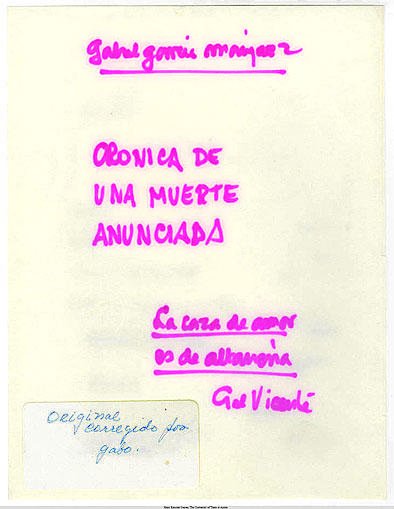 Gabriel garcía márquez
CRONICA DE
UNA MUERTE
ANUNCIADA
La caza de amor
es de altanería
Gil Vicente
Original
corregido por
gabo.